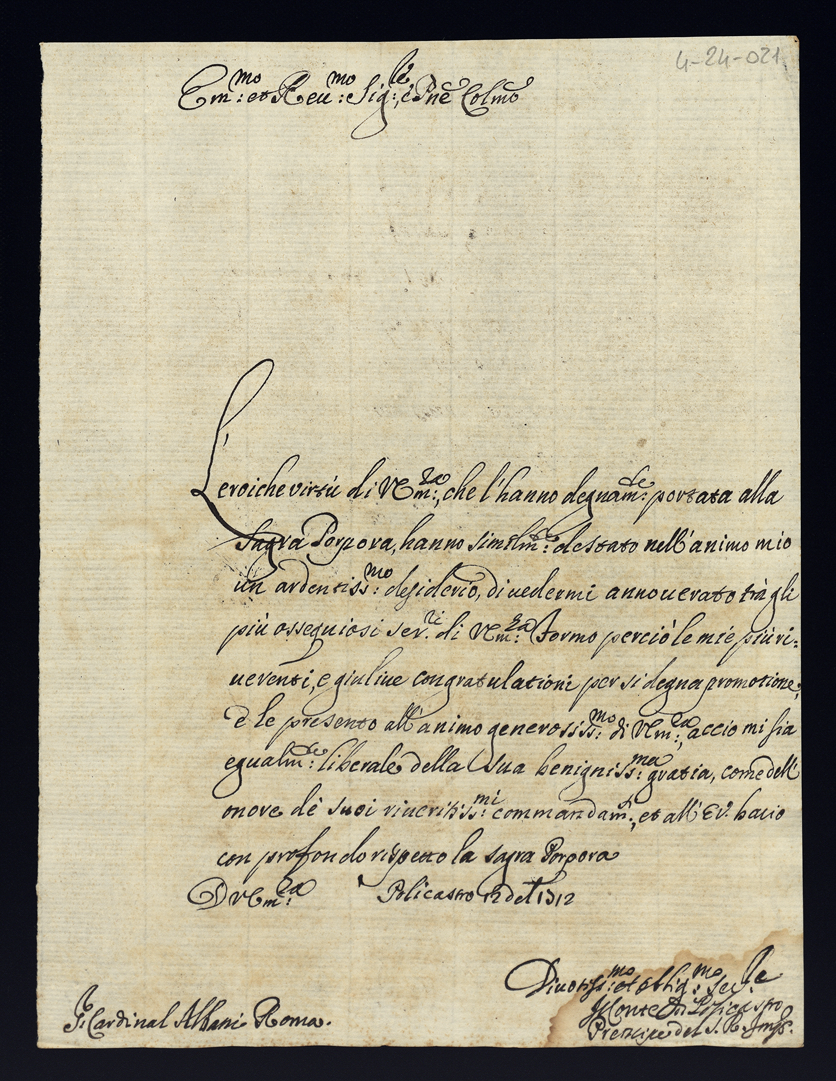 4-24-021
Em:mo et Reu:mo Sig:re, e Pnē Colmō
L'eroiche virtù di VEm:za, che l'hanno degnam:te portata alla
Sagra Porpora, hanno similm:te destato nell'animo mio
un ardentiss:mo desiderio, di uedermi annouerato trà gli
più osseguiosi ser:ri di VEm:za Formo perciò le mie più ri:
uerenti, e giuliue congratulationi per si degna promotione,
è le presento all'animo generosiss:mo di VEm:za, accio mi sia
egualm:te liberale della sua benigniss:ma gratia, come dell'
onore de suoi riueritiss:mi commandam:ti, et all'EV: bacio
con profondo rispetto la sagra Porpora
D VEm:za Policastro 12 del 1712
Diuotiss:mo et oblig:mo ser:re
Il Conte di Policastro
Prencipe del S. R. Imp:
S: Cardinal Albani Roma.